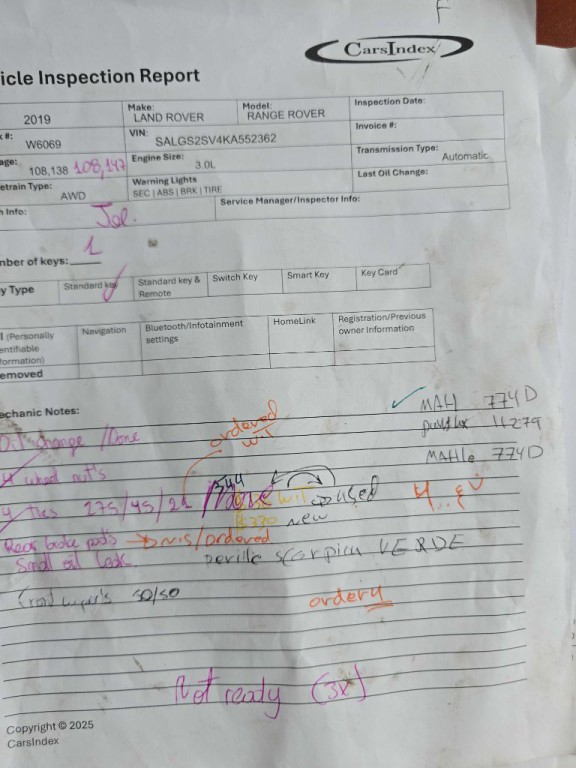 F
CarsIndex
icle Inspection Report
2019
Make:
LAND ROVER
Model:
RANGE ROVER
Inspection Date:
#:
W6069
VIN:
SALGS2SV4KA552362
Invoice #:
age:
108,138 108,147
Engine Size:
3.0L
Transmission Type:
Automatic
etrain Type:
AWD
Warning Lights
SEC | ABS | BRK | TIRE
Last Oil Change:
n Info:
Joe.
Service Manager/Inspector Info:
nber of keys: 1
y Type
Standard key
Standard key & Remote
Switch Key
Smart Key
Key Card
I (Personally
entifiable
formation)
Navigation
Bluetooth/Infotainment settings
HomeLink
Registration/Previous owner Information
emoved
echanic Notes:
MAH 774D
Oil change / Done
ordered
14279
MAHle 774D
4 nut's
4 275/45/21
544
used
4
$220 new
Rear brake pads → /ordered
Scorpion VERDE
Small oil Leak
Front 50/50
order 4
Not ready (3x)
Copyright © 2025
CarsIndex